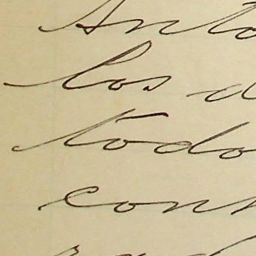 Anto
los d
todo
con